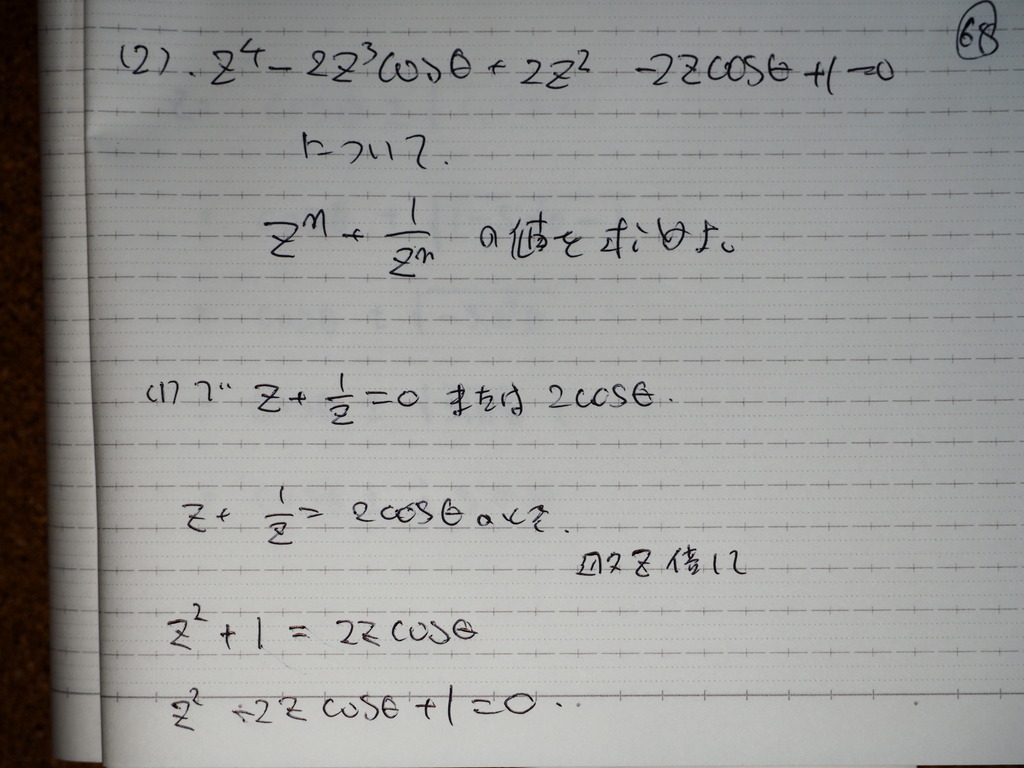 68
(2). z⁴ - 2z³cosθ + 2z² - 2zcosθ + 1 = 0
について.
zⁿ + 1/zⁿ の値を求めよ。
(1)で z + 1/z = 0 または 2cosθ.
z + 1/z = 2cosθ のとき.
両辺z倍して
z² + 1 = 2z cosθ
z² - 2z cosθ + 1 = 0 ..